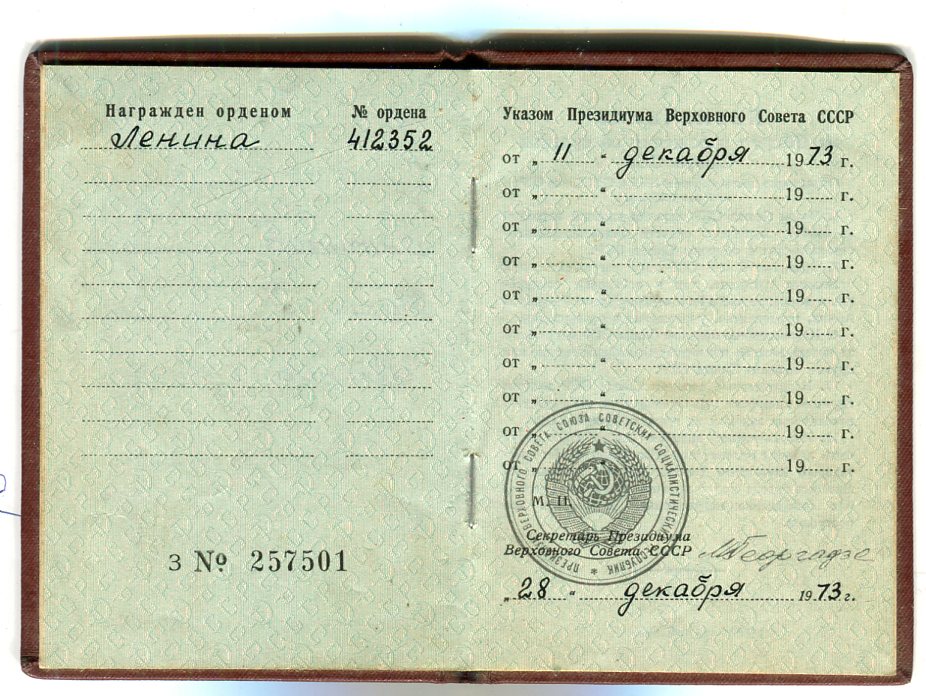 Награжден орденом
№ ордена
Ленина
412352
З № 257501
Указом Президиума Верховного Совета СССР
от „ 11 “ декабря 1973 г.
от „ “ 19 г.
от „ “ 19 г.
от „ “ 19 г.
от „ “ 19 г.
от „ “ 19 г.
от „ “ 19 г.
от „ “ 19 г.
от „ “ 19 г.
от „ “ 19 г.
М. П.
ПРЕЗИДИУМ ВЕРХОВНОГО СОВЕТА СОЮЗА СОВЕТСКИХ СОЦИАЛИСТИЧЕСКИХ РЕСПУБЛИК
Секретарь Президиума
Верховного Совета СССР
МГеоргадзе
„ 28 “ декабря 1973 г.